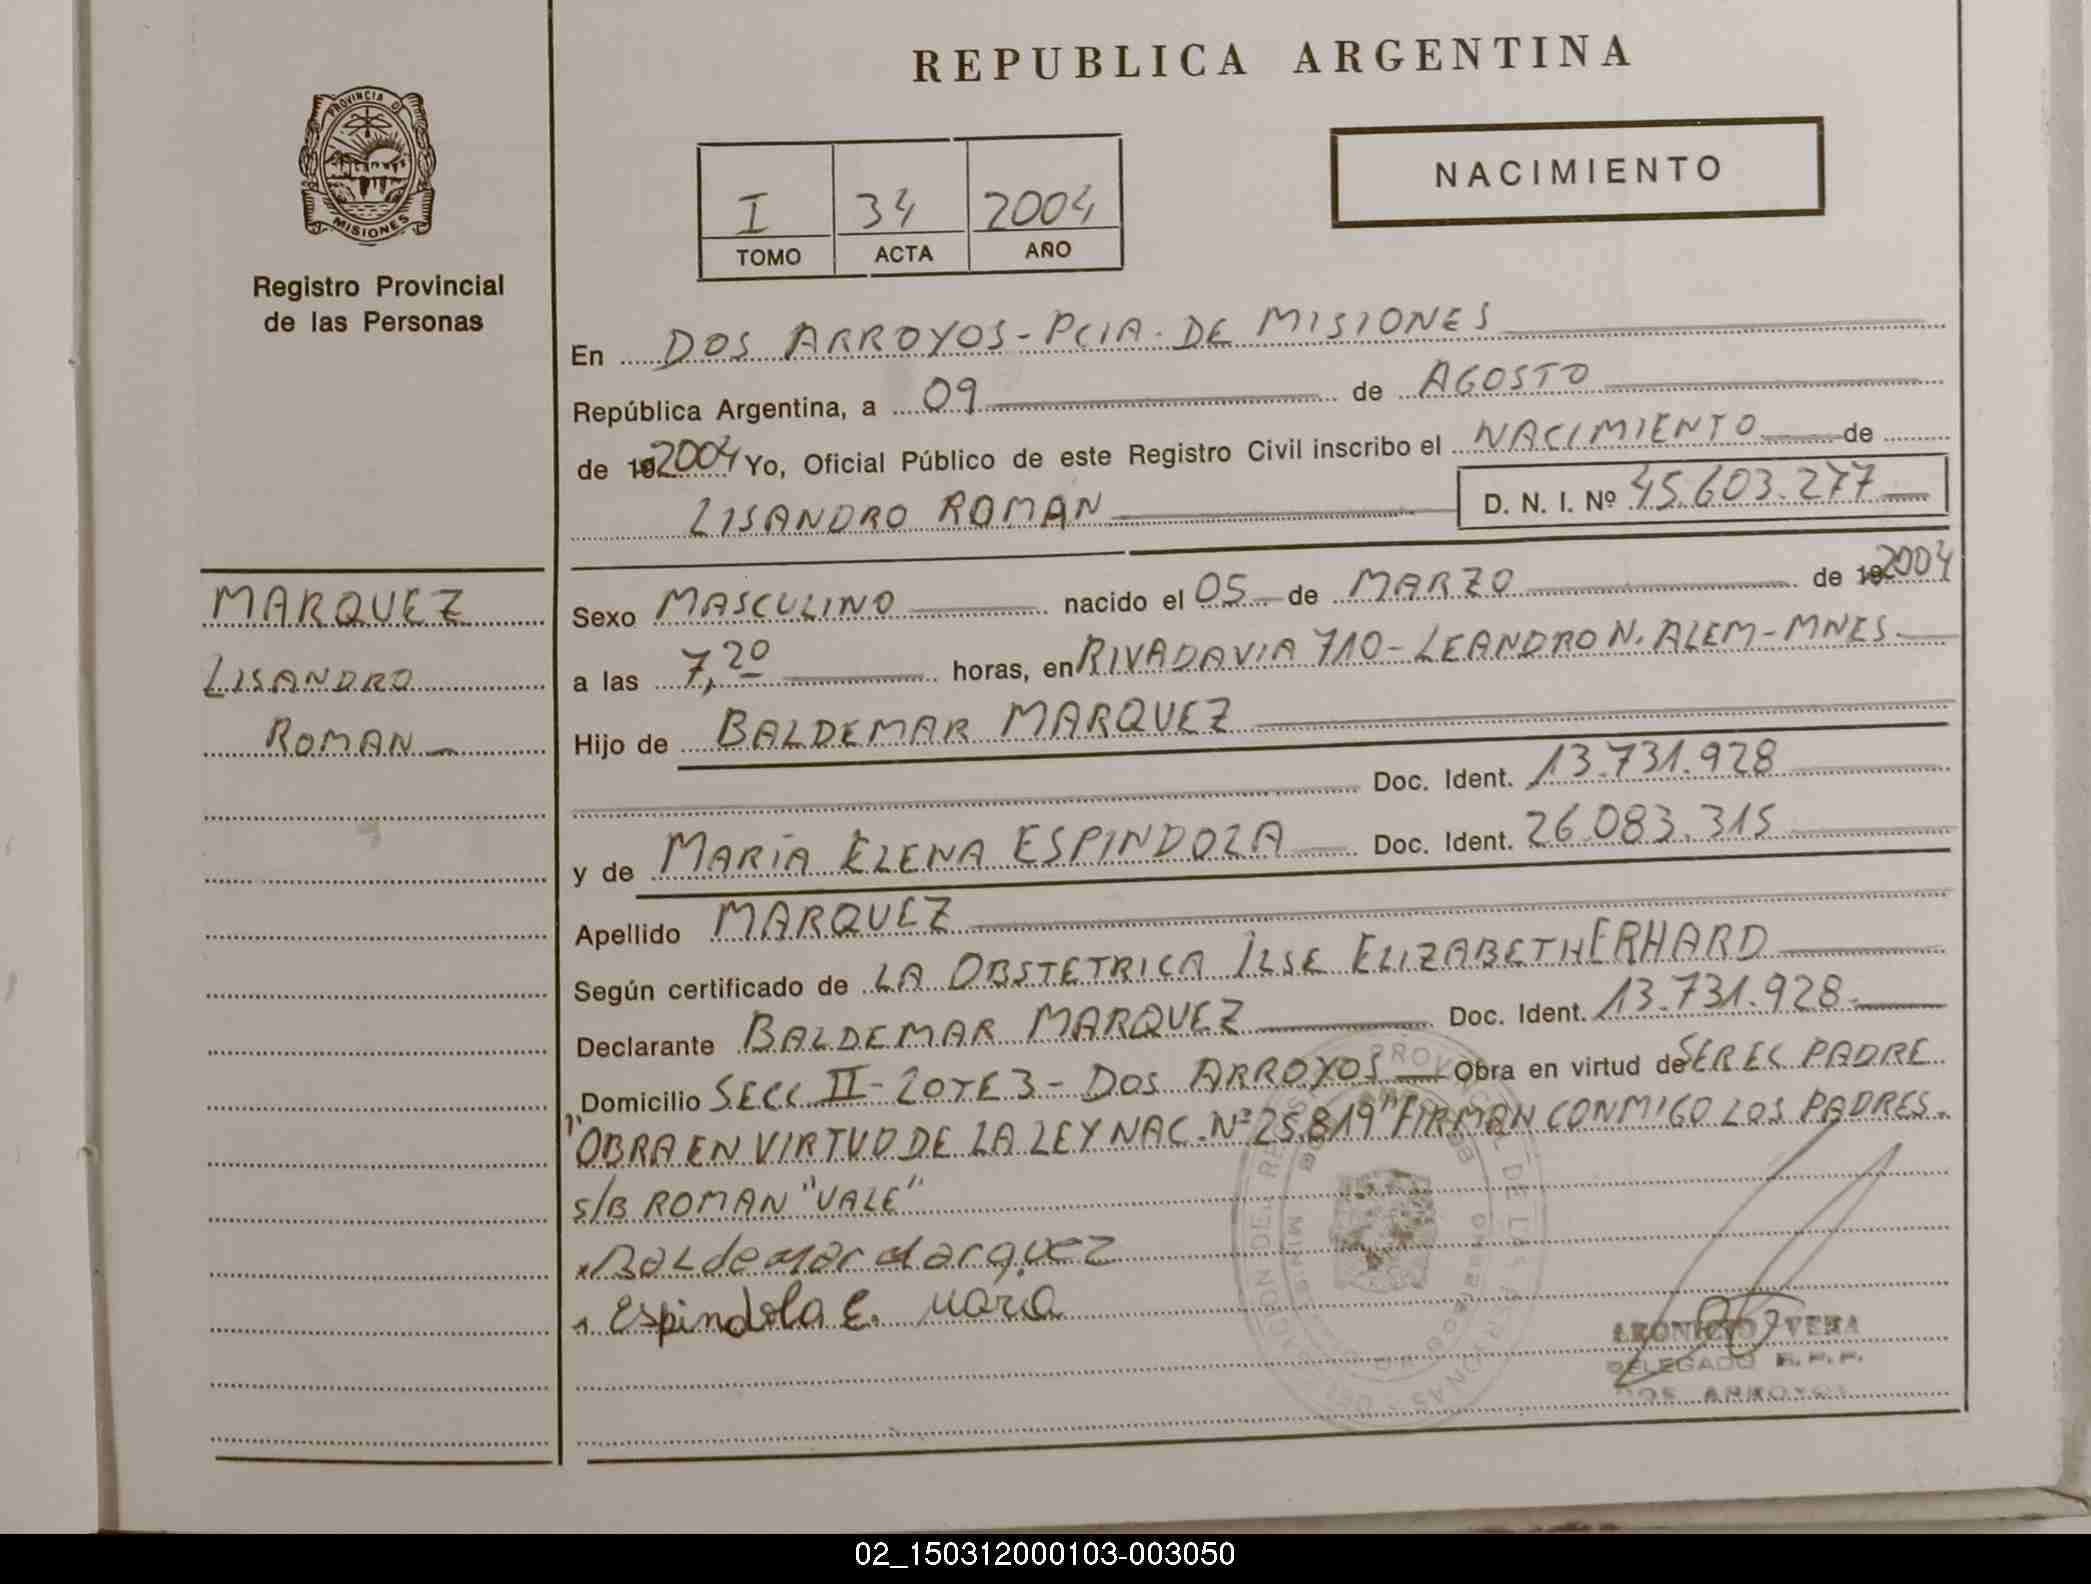 REPUBLICA ARGENTINA
PROVINCIA DE
MISIONES
Registro Provincial
de las Personas
NACIMIENTO
I 34 2004
TOMO ACTA AÑO
En DOS ARROYOS - PCIA. DE MISIONES
República Argentina, a 09 de AGOSTO
de 192004 Yo, Oficial Público de este Registro Civil inscribo el NACIMIENTO de
LISANDRO ROMAN D. N. I. Nº 45.603.277
MARQUEZ
LISANDRO
ROMAN
Sexo MASCULINO nacido el 05 de MARZO de 192004
a las 7,20 horas, en RIVADAVIA 710 - LEANDRO N. ALEM - MNES.
Hijo de BALDEMAR MARQUEZ
Doc. Ident. 13.731.928
y de MARÍA ELENA ESPINDOLA Doc. Ident. 26.083.315
Apellido MARQUEZ
Según certificado de LA OBSTETRICA ILSE ELIZABETH ERHARD
Declarante BALDEMAR MARQUEZ Doc. Ident. 13.731.928.
Domicilio SECC II - LOTE 3 - DOS ARROYOS Obra en virtud de SER EL PADRE
"OBRA EN VIRTUD DE LA LEY NAC. Nº 25.819" FIRMAN CONMIGO LOS PADRES.
S/B ROMAN "VALE"
Baldemar Marquez
Espindola E. María
VERA
DELEGADO R. P. P.
DOS ARROYOS
02_150312000103-003050